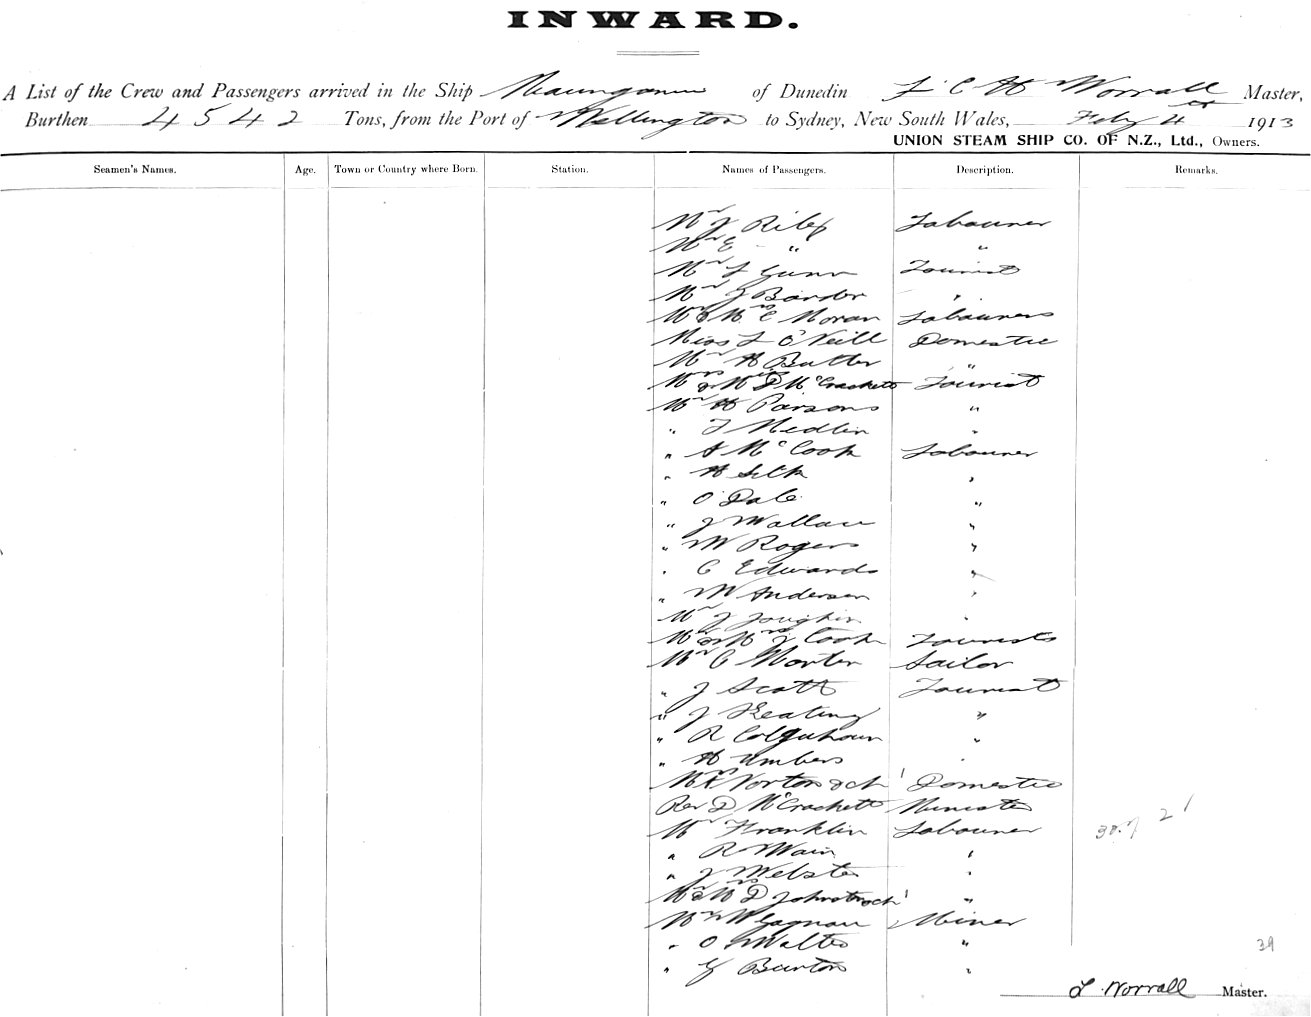 INWARD.
A List of the Crew and Passengers arrived in the Ship Maunganui of Dunedin F C H Worrall Master,
Burthen 4542 Tons, from the Port of Wellington to Sydney, New South Wales, Feby 4 1913
UNION STEAM SHIP CO. OF N.Z., Ltd., Owners.
Seamen's Names. Age. Town or Country where Born. Station. Names of Passengers. Description. Remarks.
Mr J Riley Labourer
Mr E " "
Mr F Gunn Tourist
Mr J Border "
Mr & Mrs C Moran Labourers
Miss L O'Neill Domestic
Mr H Butler "
Mrs & D McCrackett Tourist
Mr H Parsons "
" T Medlin "
" A McCook Labourer
" H Silk "
" O Dale "
" J Wallace "
" W Rogers "
" C Edwards "
" W Anderson "
Mr J Joughin "
Mr & Mrs J Cook Tourists
Mr C Morten Sailor
" J Scott Tourist
" J Keating "
" R Colquhoun "
" H Umbers "
Mrs Norton & ch 1 Domestic
Rev D McCrackett Minister
Mr Franklin Labourer 30. 2 1
" R Wain "
" J Webster "
Mr & Mrs D Johnston & ch 1 "
Mr W Gagnan Miner
" O Walter "
" G Burton "
39
F Worrall Master.